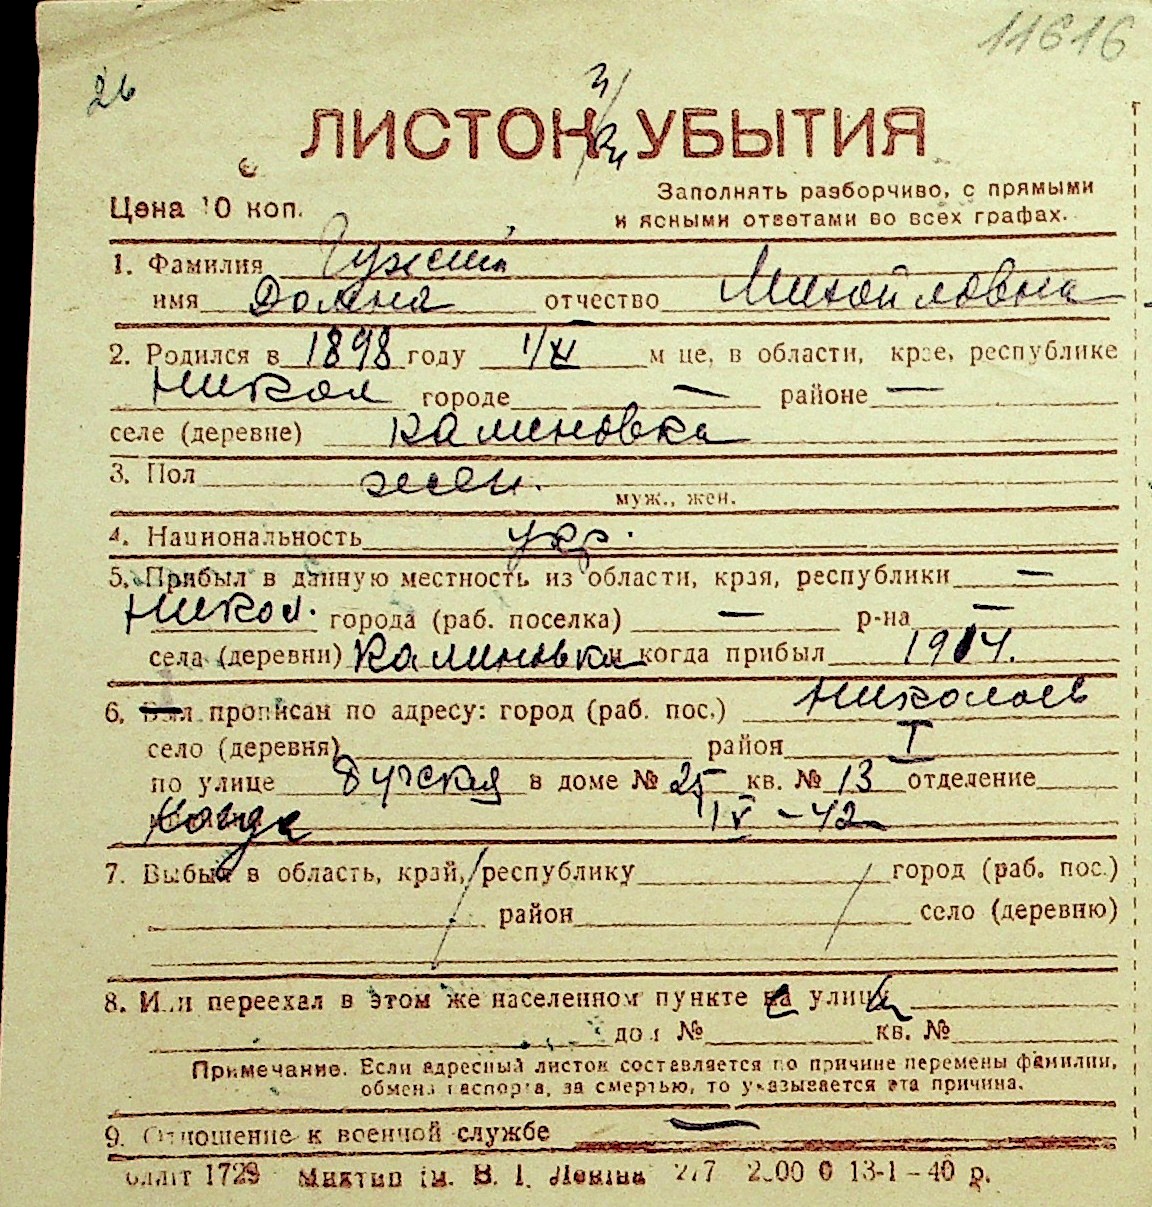 11616
26
3/
ЛИСТОК УБЫТИЯ
Цена 10 коп.
Заполнять разборчиво, с прямыми
и ясными ответами во всех графах.
1. Фамилия
имя Домна отчество Михайловна
2. Родился в 1898 году 1/XI м це, в области, крае, республике
Никол городе — районе —
селе (деревне) Калиновка
3. Пол жен.
муж., жен.
4. Национальность укр.
5. Прибыл в данную местность из области, края, республики —
Никол. города (раб. поселка) — р-на —
села (деревни) Калиновки когда прибыл 1914.
6. прописан по адресу: город (раб. пос.) Николаев
село (деревня) район I
по улице Бугская в доме № 25 кв. № 13 отделение
когда IV - 42
7. Выбыл в область, край, республику город (раб. пос.)
район село (деревню)
8. И и переехал в этом же населенном пункте улиц
до № кв. №
Примечание. Если адресный листок составляется по причине перемены фамилии,
обмена паспорта, за смертью, то указывается эта причина.
9. Отношение к военной службе —
1729 ім. В. І. Леніна 13-1-40 р.